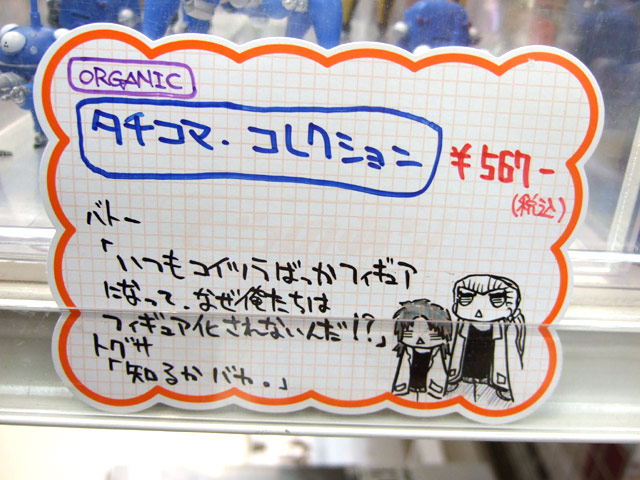 ORGANIC
タチコマ・コレクション
¥567-
(税込)
バトー
「いつもコイツらばっかフィギュア
になって、なぜ俺たちは
フィギュア化されないんだ!?」
トグサ
「知るかバカ。」